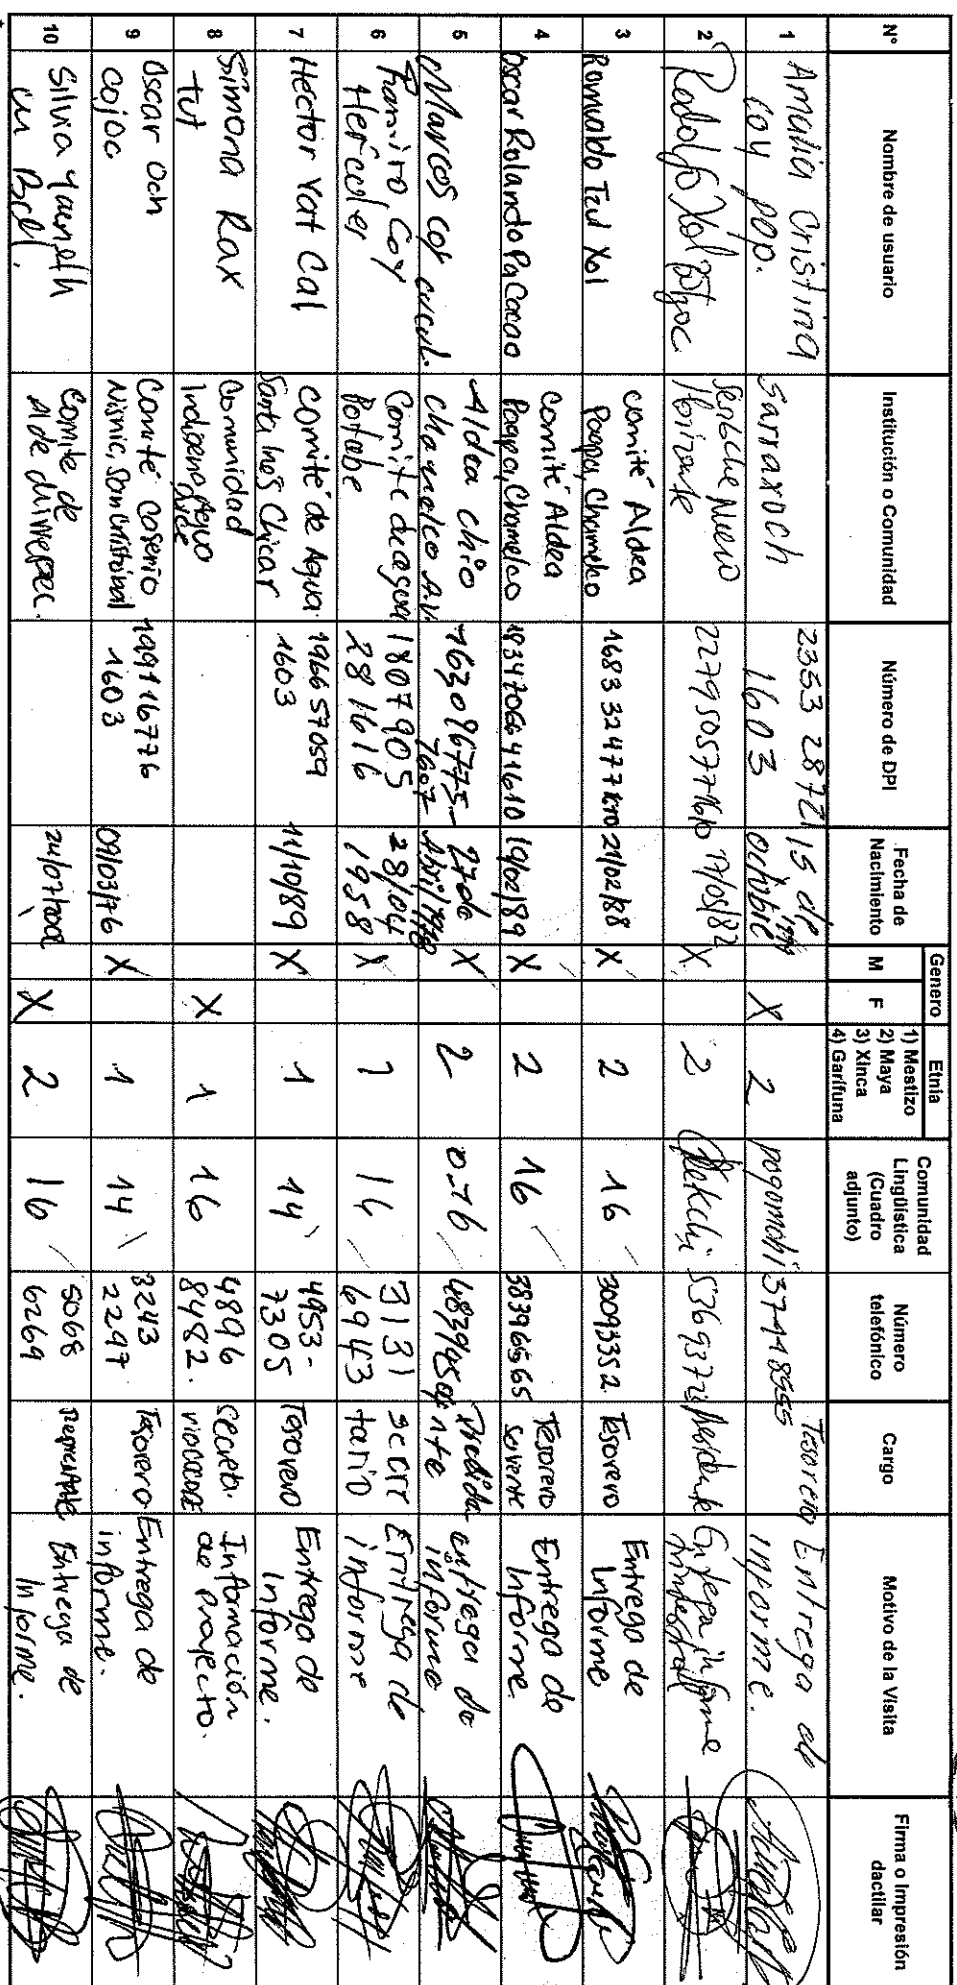 N°
Nombre de usuario
Institución o Comunidad
Número de DPI
Fecha de Nacimiento
Genero
M
F
Etnia
1) Mestizo
2) Maya
3) Xinca
4) Garífuna
Comunidad Lingüística (Cuadro adjunto)
Número telefónico
Cargo
Motivo de la Visita
Firma o Impresión dactilar
1
Amalia Cristina
Coy pop.
Sarraxoch
2353 28721
1603
15 de
octubre
X
2
pogomchi
37448555
Tesorera
Entrega de
informe.
2
Rodolfo Xol
2279505771610
17/05/82
X
2
53693728
Entrega informe
3
Romualdo Tzul Xol
comité Aldea
Poapa, Chamelco
1683324771610
21/02/88
X
2
16
30093352
Tesorero
Entrega de
Informe
4
Oscar Rolando Pa Cacao
comité Aldea
Poapa, Chamelco
1834706641610
19/02/89
X
2
16
38396565
Tesorero
Entrega de
Informe
5
Marcos
Aldea chio
chamelco A.V.
163096775
1607
27 de
Abril
X
2
entrega de
informe
6
Ramiro Coy
Comite de agua
1807905
281616
28/04
1958
X
1
14
3131
6943
secre
tario
Entrega de
informe
7
Hector Yat Cal
comité de Agua
Santa Inés Chicar
196657059
1603
11/10/89
X
1
14
4953-
7305
Tesorero
Entrega de
Informe.
8
Simona Rax
tut
Comunidad
X
1
16
4896
8482.
secreta.
Información
de proyecto.
9
Oscar Och
cojoc
Comité Caserio
Nisnic, San Cristóbal
199116776
1603
09/03/76
X
1
14
3243
2297
Tesorero
Entrega de
informe.
10
Silvia Yaneth
comite de
X
2
16
5068
6269
Entrega de
Informe.